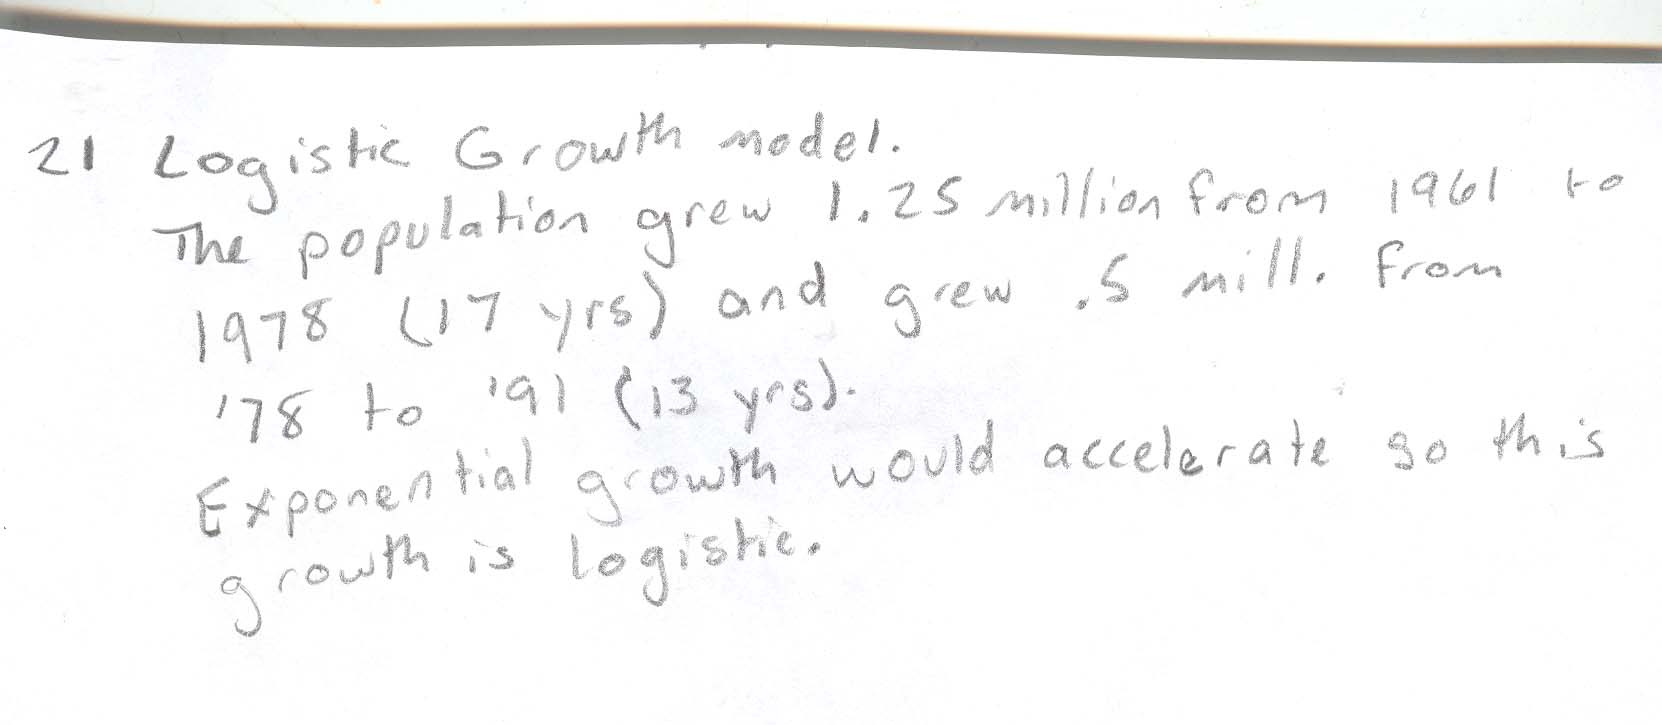 21 Logistic Growth model.
The population grew 1.25 million from 1961 to
1978 (17 yrs) and grew .5 mill. from
'78 to '91 (13 yrs).
Exponential growth would accelerate so this
growth is logistic.